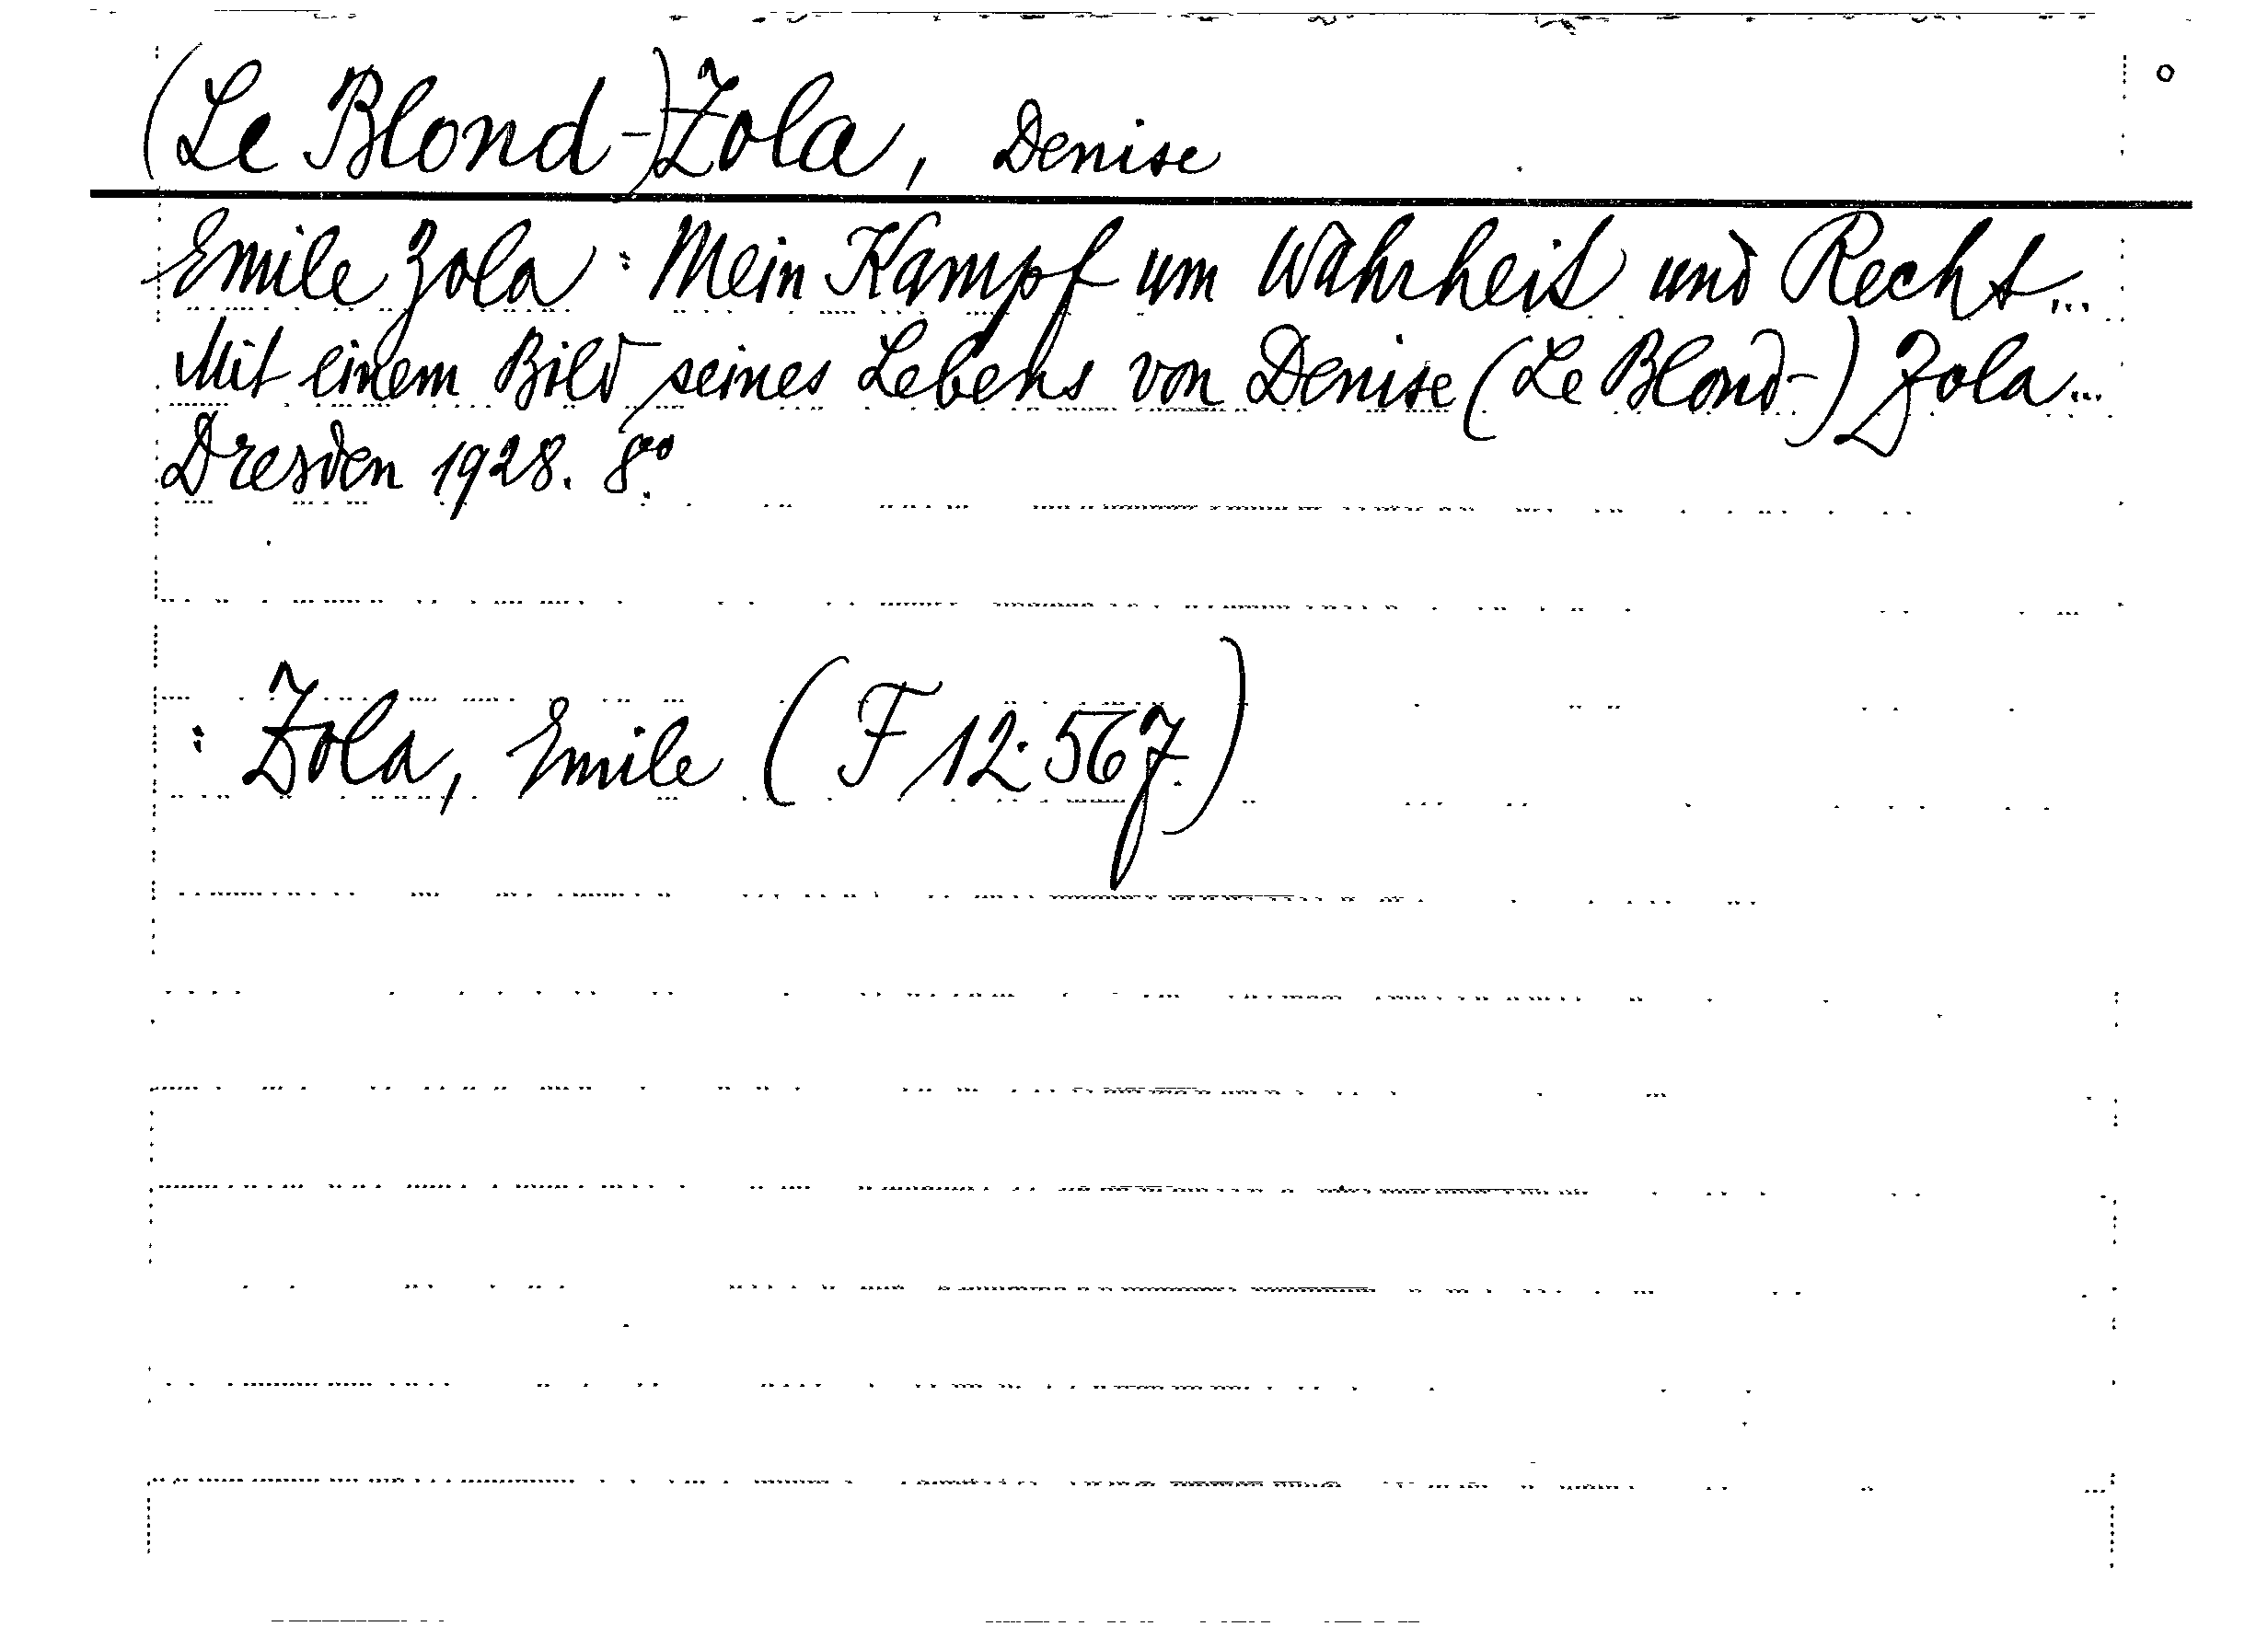 (Le Blond-)Zola, Denise
Emile Zola: Mein Kampf um Wahrheit und Recht...
Mit einem Bild seines Lebens von Denise (Le Blond-) Zola...
Dresden 1928. 8°.
: Zola, Emile (F 12:567.)